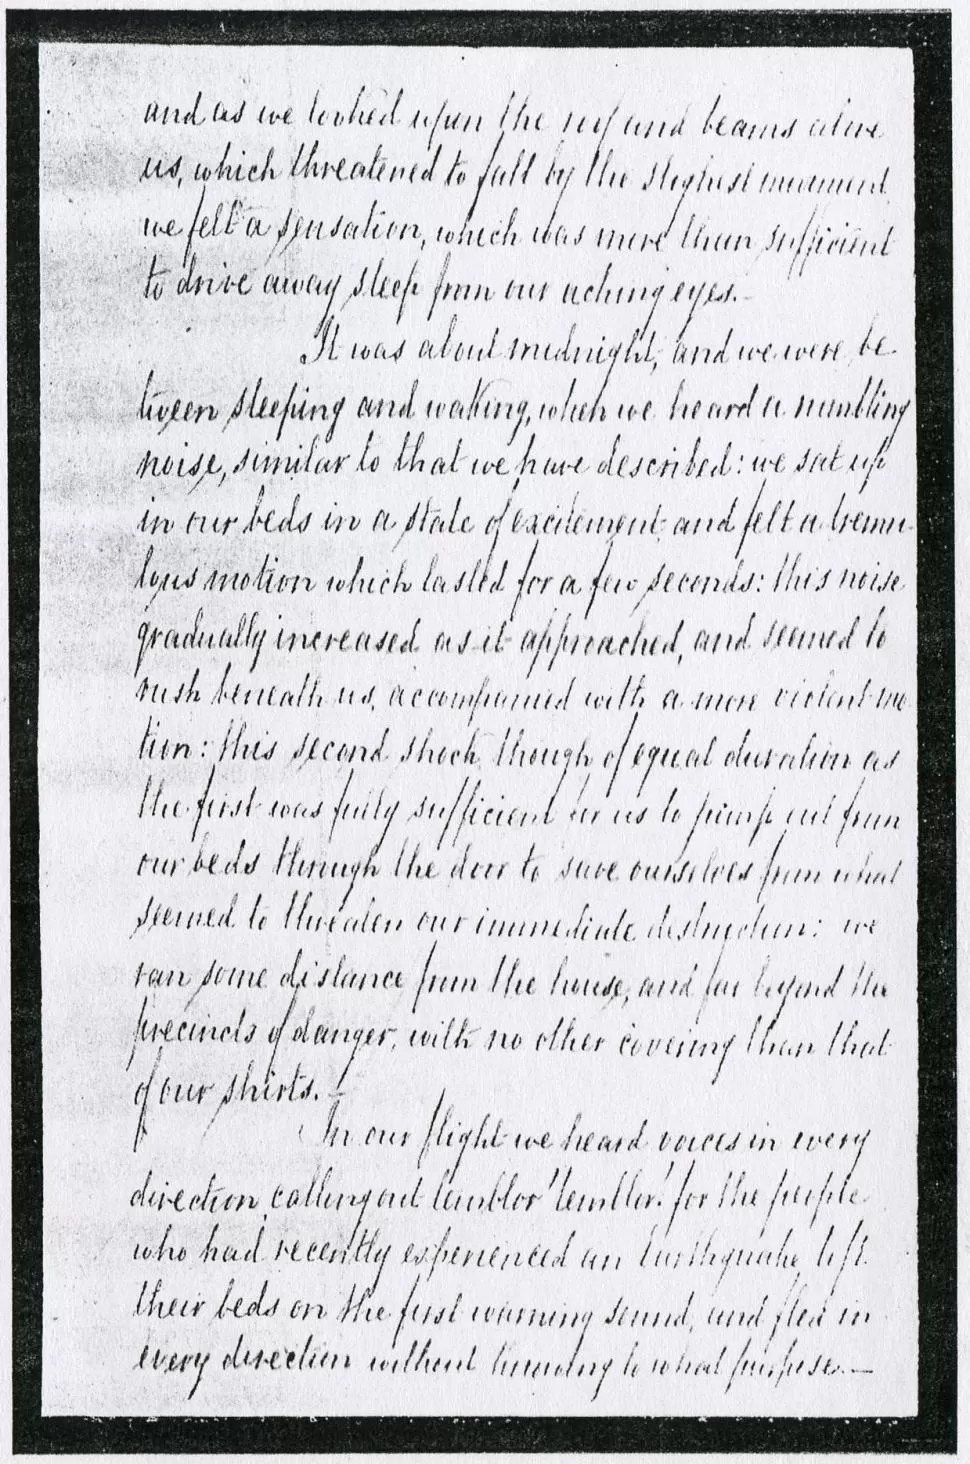 and as we looked upon the roof and beams above
us, which threatened to fall by the slighest movement
we felt a sensation, which was more than sufficient
to drive away sleep from our aching eyes.—
It was about midnight, and we were be
tween sleeping and waking, when we heard a rumbling
noise, similar to that we have described: we sat up
in our beds in a state of excitement and felt a tremu-
lous motion which lasted for a few seconds: this noise
gradually increased as it approached, and seemed to
rush beneath us, accompanied with a more violent mo
tion: this second shock, though of equal duration as
the first was fully sufficient for us to jump out from
our beds through the door to save ourselves from what
seemed to threaten our immediate distruction: we
ran some distance from the house, and far beyond the
precincts of danger, with no other covering than that
of our shirts.—
In our flight we heard voices in every
direction, calling out temblor! temblor! for the people
who had recently experienced an Earthquake, left
their beds on the first warning sound, and fled in
every direction without knowing to what purpose.—